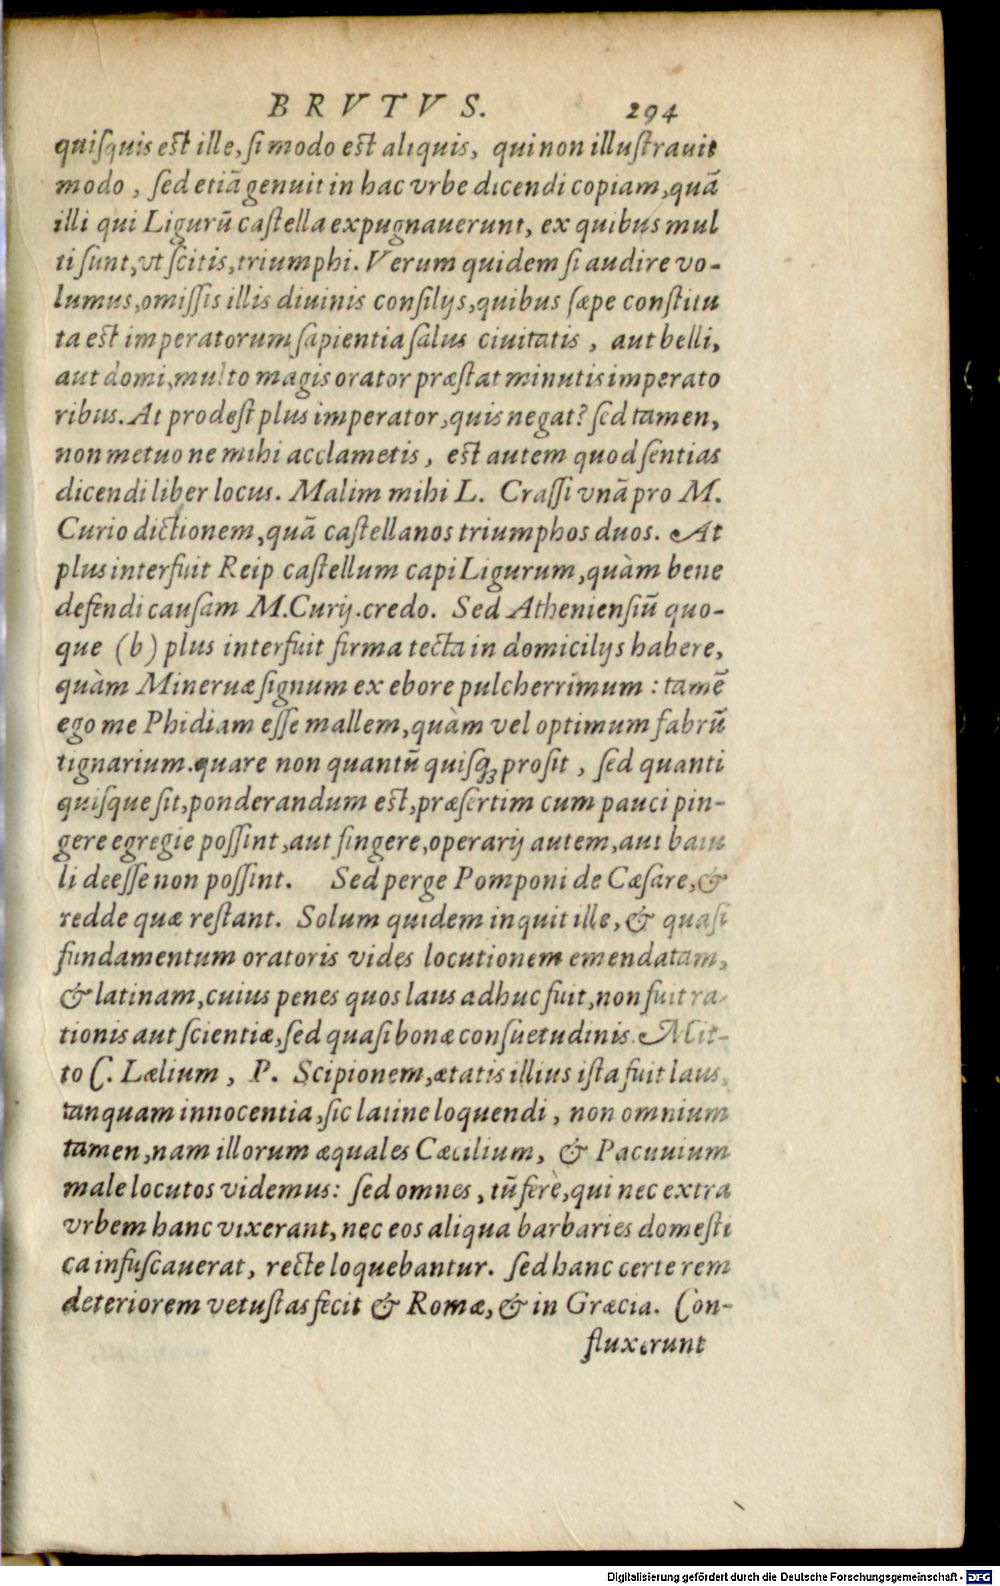 BRVTVS. 294
quiſquis eſt ille, ſi modo eſt aliquis, qui non illuſtrauit
modo, ſed etiā genuit in hac vrbe dicendi copiam, quā
illi qui Ligurū caſtella expugnauerunt, ex quibus mul
ti ſunt, vt ſcitis, triumphi. Verum quidem ſi audire vo-
lumus, omiſſis illis diuinis conſilijs, quibus ſæpe conſtitu
ta eſt imperatorum ſapientia ſalus ciuitatis, aut belli,
aut domi, multo magis orator præſtat minutis imperato
ribus. At prodeſt plus imperator, quis negat? ſed tamen,
non metuo ne mihi acclametis, eſt autem quod ſentias
dicendi liber locus. Malim mihi L. Craſſi vnā pro M.
Curio dictionem, quā caſtellanos triumphos duos. At
plus interfuit Reip caſtellum capi Ligurum, quàm bene
defendi cauſam M. Curij. credo. Sed Athenienſiū quo-
que (b) plus interfuit firma tecta in domicilijs habere,
quàm Mineruæ ſignum ex ebore pulcherrimum: tamē
ego me Phidiam eſſe mallem, quàm vel optimum fabrū
tignarium. quare non quantū quiſq; proſit, ſed quanti
quiſque ſit, ponderandum eſt, præſertim cum pauci pin-
gere egregie poſſint, aut fingere, operarij autem, aut baiu
li deeſſe non poſſint. Sed perge Pomponi de Cæſare, &
redde quæ reſtant. Solum quidem inquit ille, & quaſi
fundamentum oratoris vides locutionem emendatam,
& latinam, cuius penes quos laus adhuc fuit, non fuit ra-
tionis aut ſcientiæ, ſed quaſi bonæ conſuetudinis. Mit-
to C. Lælium, P. Scipionem, ætatis illius iſta fuit laus,
tanquam innocentia, ſic latine loquendi, non omnium
tamen, nam illorum æquales Cæcilium, & Pacuuium
male locutos videmus: ſed omnes, tū ferè, qui nec extra
vrbem hanc vixerant, nec eos aliqua barbaries domeſti
ca infuſcauerat, recte loquebantur. ſed hanc certe rem
deteriorem vetuſtas fecit & Romæ, & in Græcia. Con-
fluxerunt
Digitalisierung gefördert durch die Deutsche Forschungsgemeinschaft - DFG